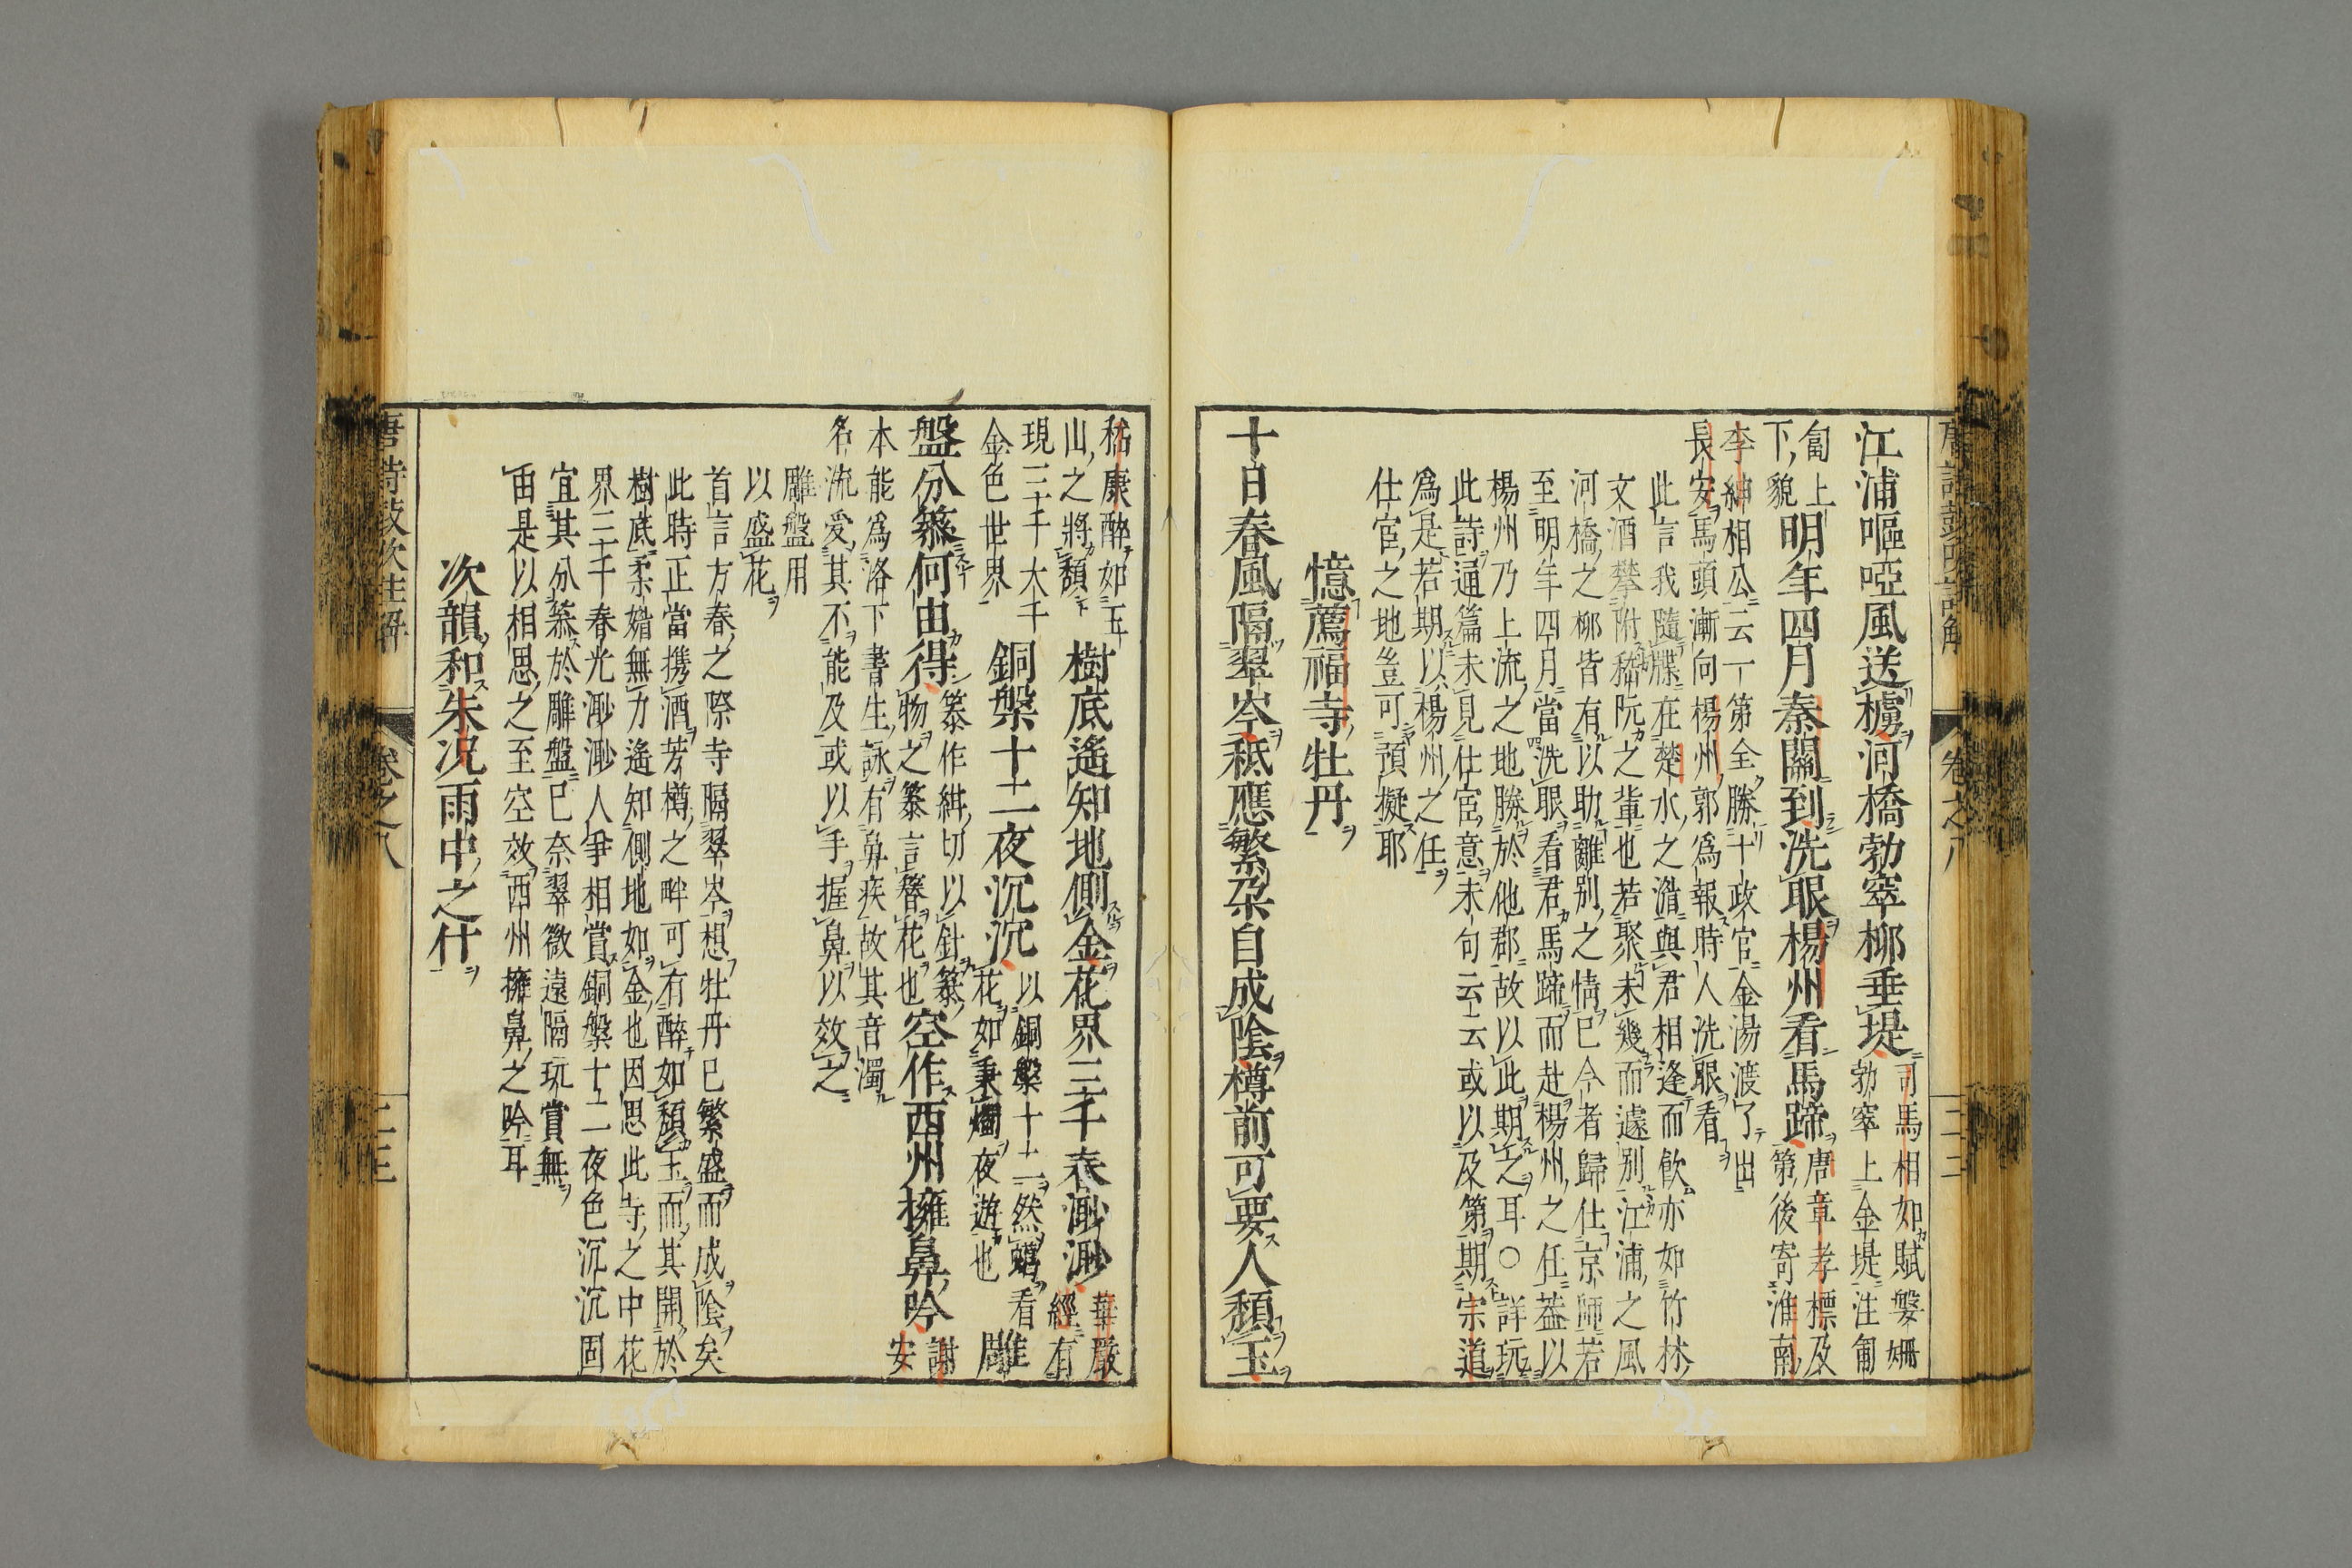 江浦嘔啞風送櫓河橋勃窣柳垂堤 司馬相如賦媻姍
勃窣上金堤注匍
匐上
下貌 明年四月秦關到洗眼楊州看馬蹄 唐章孝標及
第後寄淮南
李紳相公云一第全勝十政官金湯渡了出
長安馬頭漸向楊州郭爲報時人洗眼看
此言我隨牒在楚水之濱與君相逢而飲亦如竹林
文酒攀附嵇阮之輩也若聚未幾而遽別江浦之風
河橋之柳皆有以助離別之情已今者歸仕京師若
至明年四月當洗眼看君馬蹄而赴楊州之任葢以
楊州乃上流之地勝於他郡故以此期之耳○詳玩
此詩通篇未見仕宦意末句云云或以及第期宗道
爲是若期以楊州之任
仕宦之地豈可預擬耶
憶薦福寺牡丹
十日春風隔翠岑秪應繁朶自成陰樽前可要人頹玉
嵇康醉如玉
山之將頹 樹底遙知地側金花界三千春渺渺 華嚴
經有
現三千大千
金色世界 銅槃十二夜沉沉 以銅槃十二然蠟看
花如秉燭夜遊也 雕
盤分篸何由得 篸作紺切以針篸
物之篸言簪花也 空作西州擁鼻吟 謝
安
本能爲洛下書生詠有鼻疾故其音濁
名流愛其不能及或以手握鼻以效之
雕盤用
以盛花
首言方春之際寺隔翠岑想牡丹已繁盛而成陰矣
此時正當携酒芳樽之畔可有醉如頹玉而其開於
樹底柔婚無力遙知側地如金也因思此寺之中花
界三千春光渺渺人爭相賞銅槃十二夜色沉沉固
宜其分篸於雕盤已奈翠微遠隔玩賞無
由是以相思之至空效西州擁鼻之吟耳
次韻和朱况雨中之什
唐詩鼓吹註解 卷之八 二三